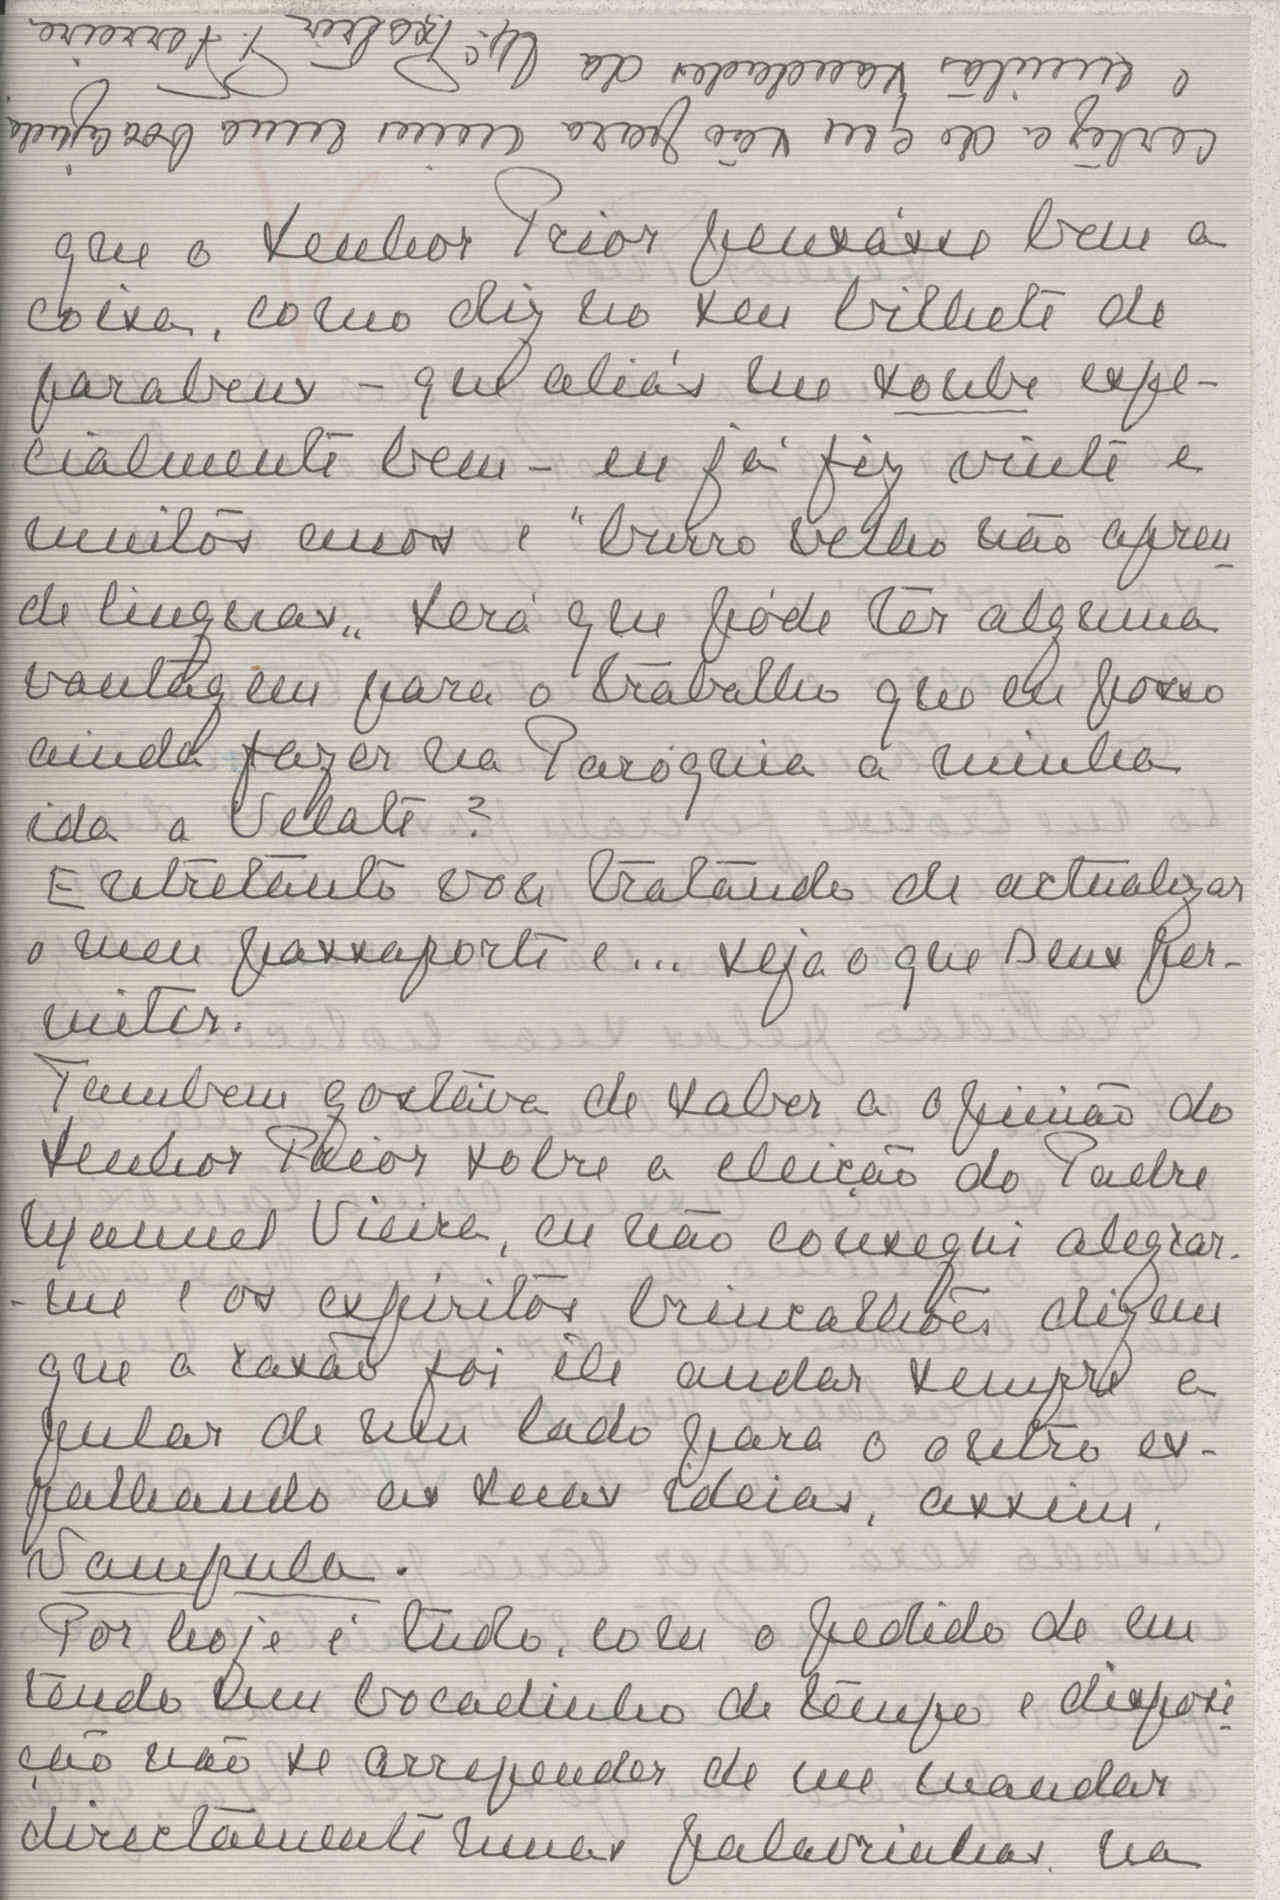 que o Senhor Prior pensasse bem a
coisa, como diz no seu bilhete de
parabens - que aliás me soube espe-
cialmente bem - eu já fiz vinte e
muitos anos e "burro velho não apren
de linguas„ será que póde ter alguma
vantagem para o trabalho que eu posso
ainda fazer na Paróquia a minha
ida a Velate?
Entretanto vou tratando de actualizar
o meu passaporte e... seja o que Deus per-
mitir.
Tambem gostava de saber a opinião do
Senhor Prior sobre a eleição do Padre
Manuel Vieira, eu não consegui alegrar-
-me e os espiritos brincalhões dizem
que a razão foi êle andar sempre a
pular de um lado para o outro es-
palhando as suas ideias, assim,
Vampula.
Por hoje é tudo, com o pedido de em
tendo um bocadinho de tempo e disposi
ção não se arrepender de me mandar
directamente umas palavrinhas na
certeza de que são para mim uma boa ajuda
e muitas saudades da Mª Isabel P. Ferreira